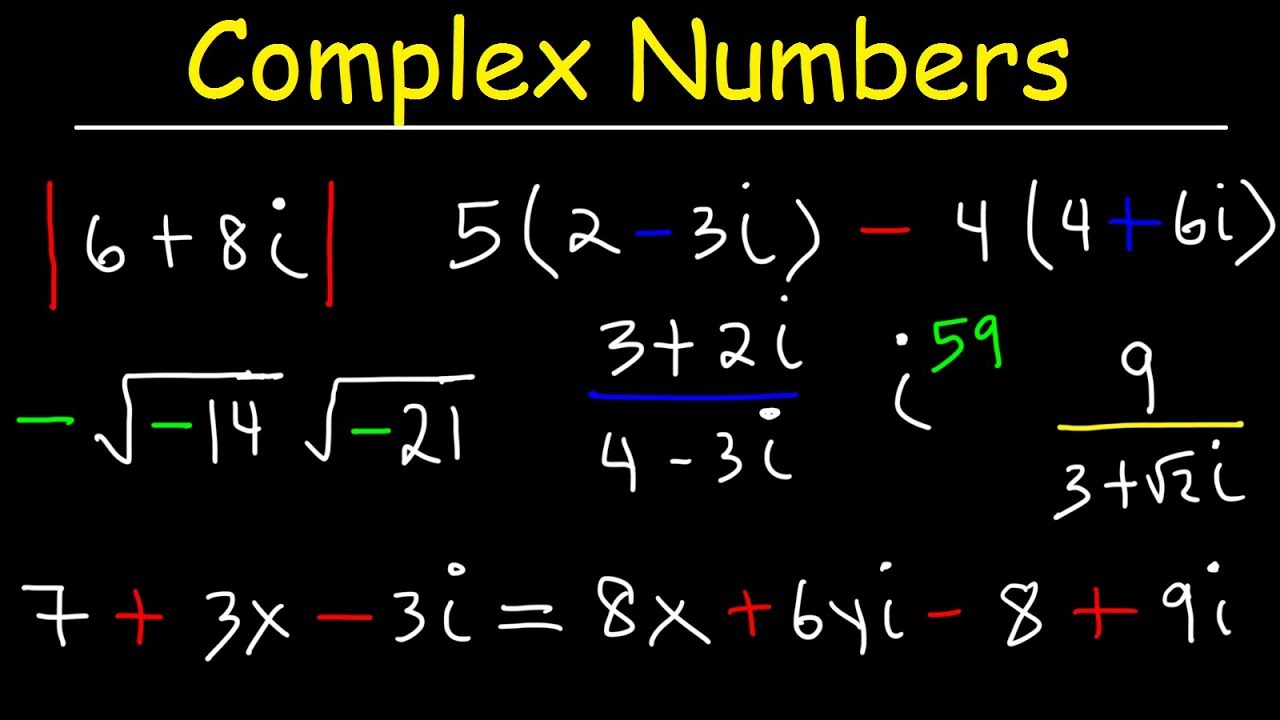 Complex Numbers
|6+8i| 5(2-3i) - 4(4+6i)
-√-14 √-21 3+2i/4-3i i^59 9/3+√2i
7+3x-3i=8x+6yi-8+9i